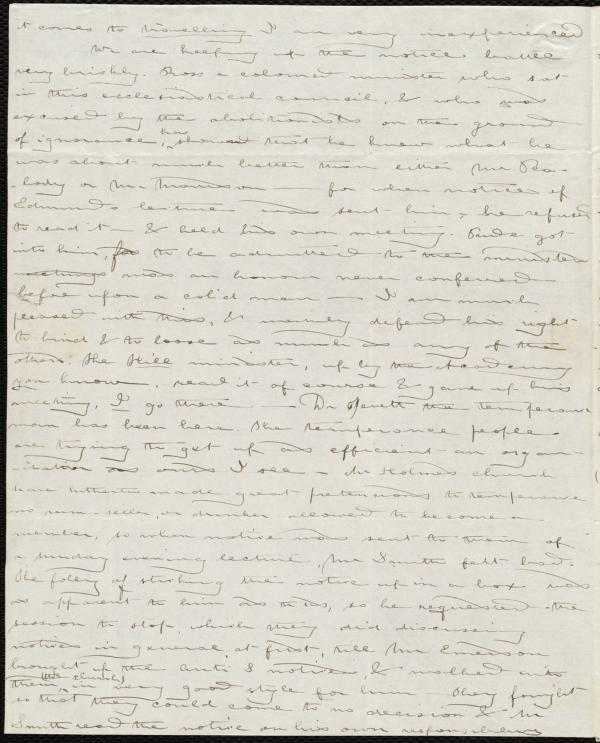 it comes to travelling I am very inexperienced
We are keeping up the notice battle
very briskly. Cross a colored minister who sat
in this ecclesiastical council, & who was
excused by the abolitionists on the ground
of ignorance, has showed that he knew what he
was about much better than either Mr Pea-
body or Mr Thomson — for when notice of
Edmunds lecture was sent him, he refused
to read it — & held his own meeting. Pride got
into him, for to be admitted to the ministers
meetings was an honour never conferred
before upon a col'd man — I am much
pleased with this, & merrily defend his right
to bind & to loose as much as any of the
others. The Hill minister, up by the Academy
you know, read it of course & gave up his
meeting, I go there — Dr Jewett the temperance
man has been here. The temperance people
are trying to get up as efficient an organ-
ization as ours I see — Mr Holmes church
have hitherto made great pretensions to temperance
no rum-seller, or drinker allowed to become a
member, so when notice was sent to them of
a sunday evening lecture, Mr Smith felt bad.
The folly of sticking the notice up in a box was
as apparent to him as to us, so he requested the
session to stop, which they did discussing
notices in general, at first, till Mr Emerson
brought up the Anti S notices, & walked into
them, the church, in very good style for him They fought
so that they could come to no decision & Mr
Smith read the notice on his own responsibility